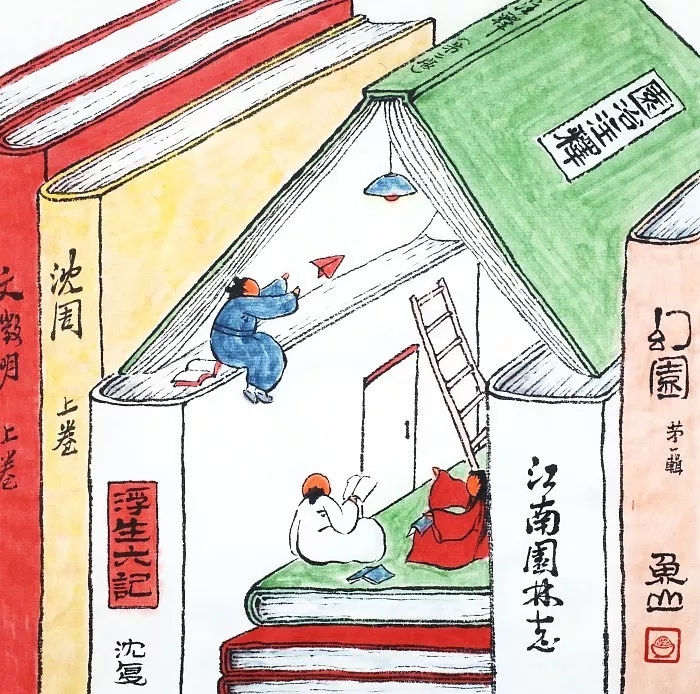 文徵明 上卷
沈周 上卷
浮生六記
沈复
注釋
(第二版)
園冶注釋
江南園林志
幻園 第一輯
魚山